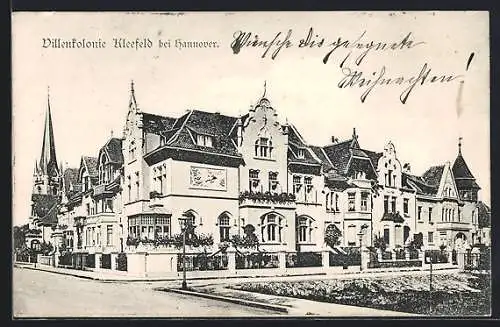 Villenkolonie Kleefeld bei Hannover.
Wünsche Dir gesegnete
Weihnachten!